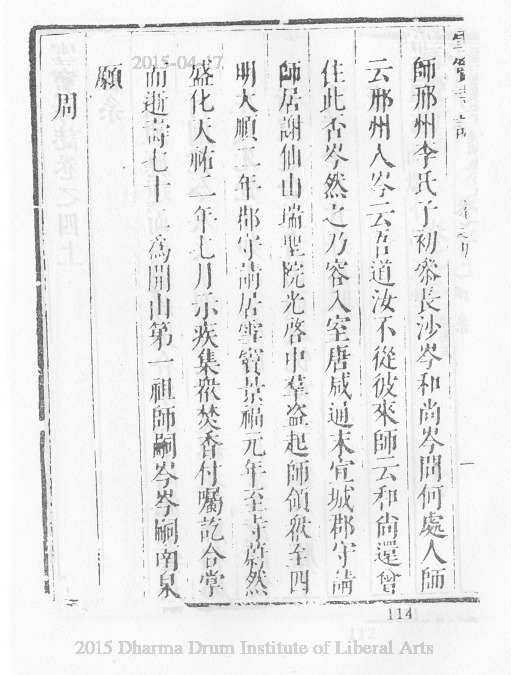 雪竇寺誌
師邢州李氏子初叅長沙岑和尚岑問何處人師
云邢州人岑云吾道汝不從彼來師云和尚還曾
住此否岑然之乃容入室唐咸通末宣城郡守請
師居謝仙山瑞聖院光啓中羣盗起師領衆至四
明大順二年郡守請居雪竇景福元年至寺蔚然
盛化天祐二年七月示疾集衆焚香付囑訖合掌
而逝壽七十 爲開山第一祖師嗣岑岑嗣南泉
願
周
114
2015-04-17
2015 Dharma Drum Institute of Liberal Arts